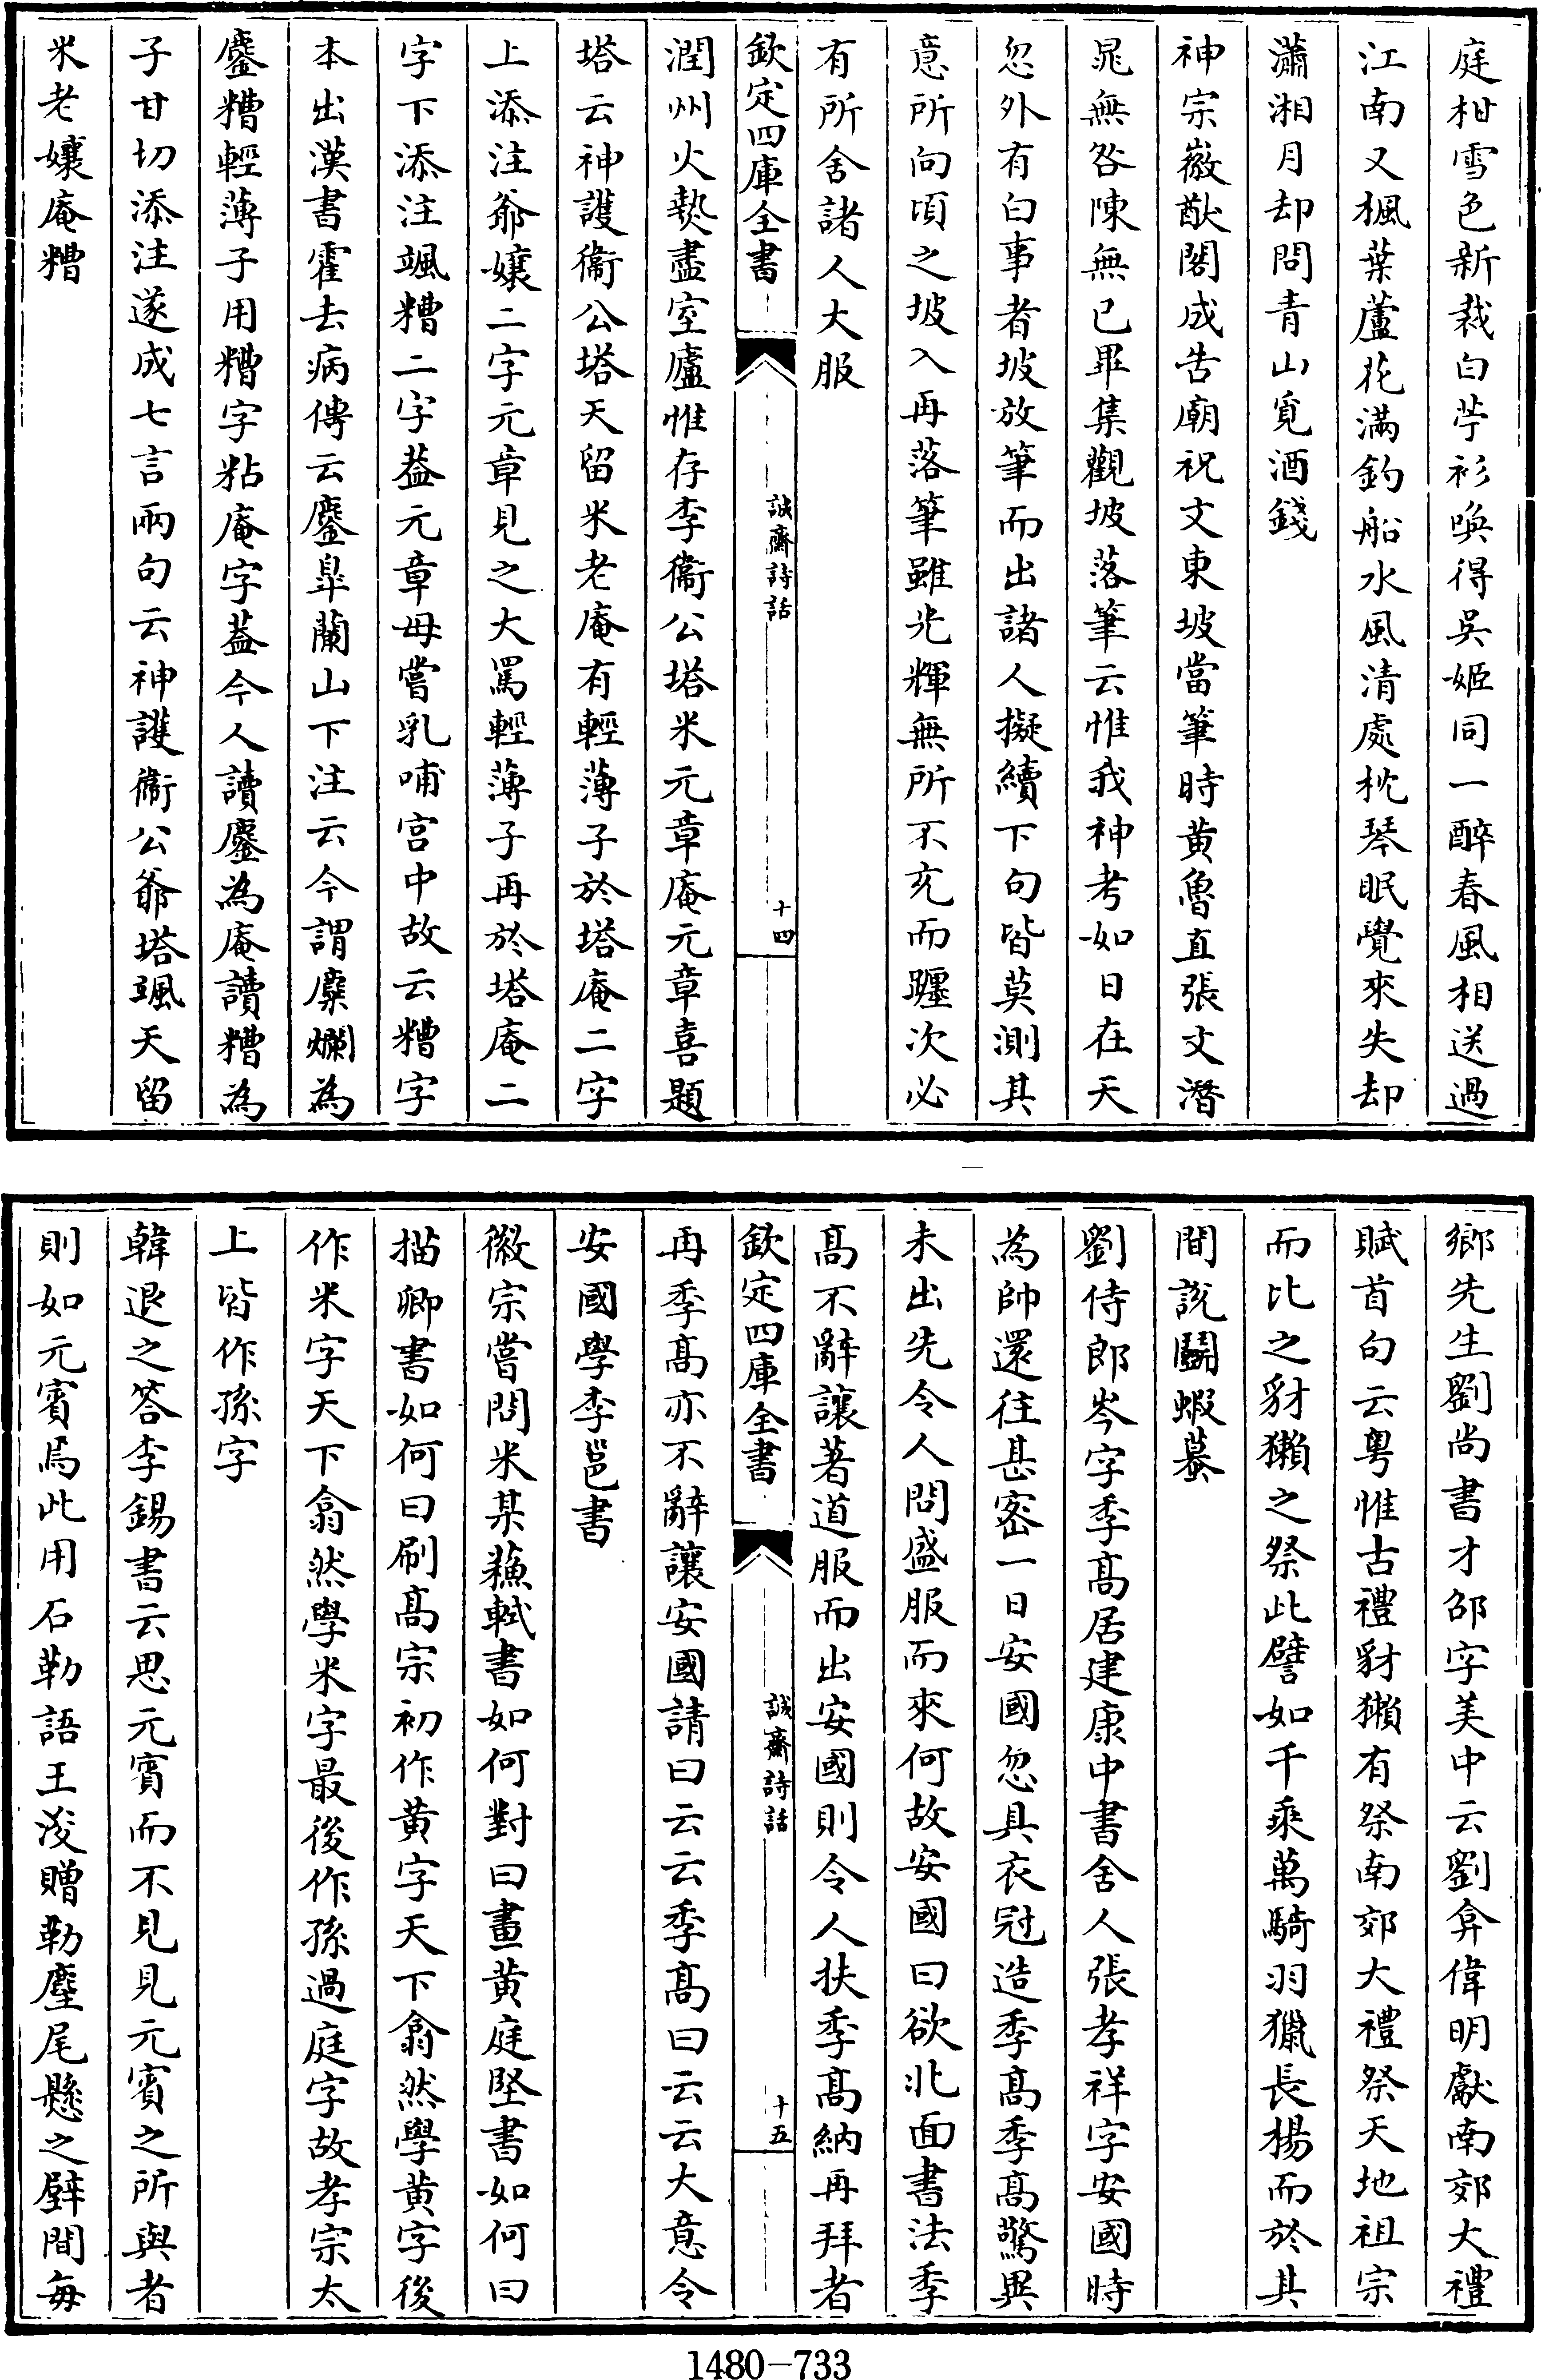 庭柑雪色新裁白苧衫喚得吳姬同一醉春風相送過
江南又楓葉蘆花滿釣船水風清處枕琴眠覺來失却
瀟湘月却問青山覓酒錢
神宗徽猷閣成告廟祝文東坡當筆時黄魯直張文潛
晁無咎陳無已畢集觀坡落筆云惟我神考如日在天
忽外有白事者坡放筆而出諸人擬續下句皆莫測其
意所向頃之坡入再落筆雖光輝無所不充而躔次必
有所舍諸人大服
欽定四庫全書
誠齋詩話
十四
潤州火爇盡室廬惟存李衛公塔米元章庵元章喜題
塔云神護衞公塔天留米老庵有輕薄子於塔庵二字
上添注爺孃二字元章見之大罵輕薄子再於塔庵二
字下添注颯糟二字葢元章母嘗乳哺宫中故云糟字
本出漢書霍去病傳云鏖皐蘭山下注云今謂糜爛為
鏖糟輕薄子用糟字粘庵字葢今人讀鏖為庵讀糟為
子甘切添注遂成七言兩句云神護衞公爺塔颯天留
米老孃庵糟
鄉先生劉尚書才邵字美中云劉弇偉明獻南郊大禮
賦首句云粤惟古禮豺獺有祭南郊大禮祭天地祖宗
而比之豺獺之祭此譬如千乘萬騎羽獵長楊而於其
間說鬭蝦蟇
劉侍郎岑字季髙居建康中書舍人張孝祥字安國時
為帥還往甚宻一日安國忽具衣冠造季髙季髙驚異
未出先令人問盛服而來何故安國曰欲北面書法季
髙不辭讓著道服而出安國則令人扶季髙納再拜者
欽定四庫全書
誠齋詩話
十五
再季髙亦不辭讓安國請曰云云季髙曰云云大意令
安國學李邕書
徽宗嘗問米某蘓軾書如何對曰畫黄庭堅書如何曰
描卿書如何曰刷髙宗初作黄字天下翕然學黄字後
作米字天下翕然學米字最後作孫過庭字故孝宗太
上皆作孫字
韓退之答李錫書云思元賓而不見見元賓之所與者
則如元賓焉此用石勒語王浚贈勒麈尾懸之壁間每
1480-733